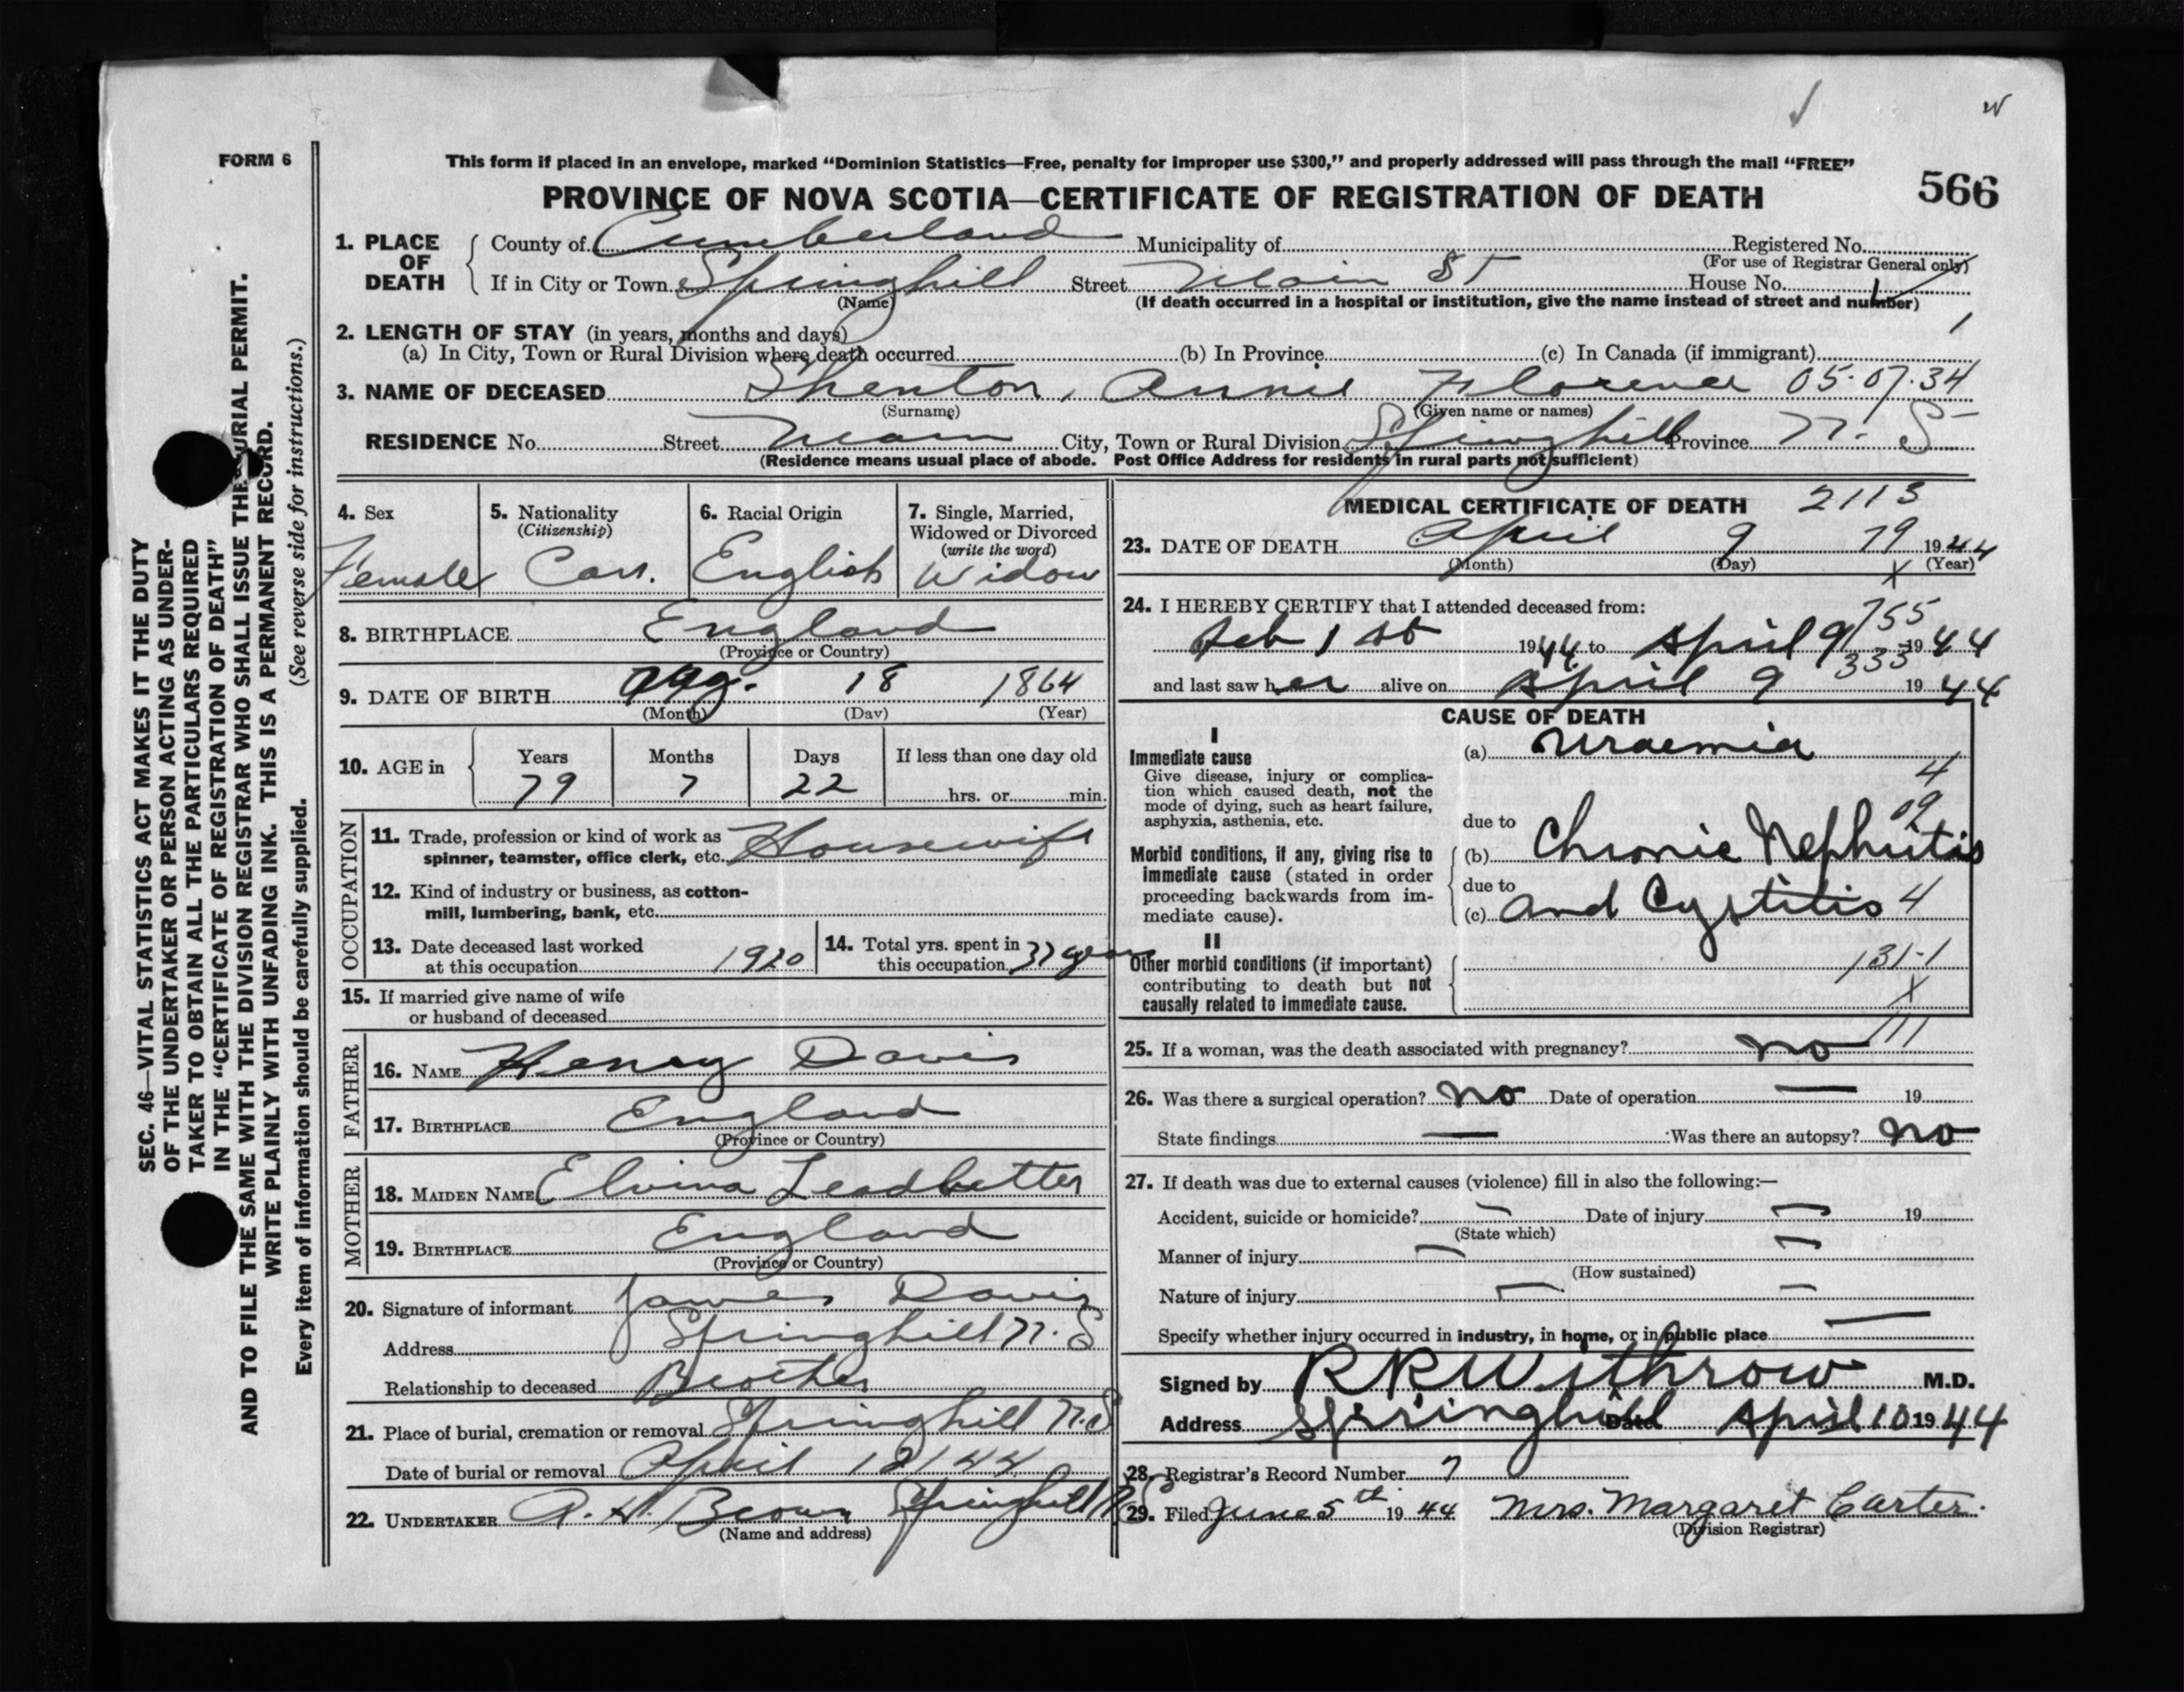 W
FORM 6
This form if placed in an envelope, marked “Dominion Statistics—Free, penalty for improper use $300,” and properly addressed will pass through the mail “FREE”
PROVINCE OF NOVA SCOTIA—CERTIFICATE OF REGISTRATION OF DEATH
566
1. PLACE OF DEATH
County of Cumberland Municipality of Registered No.
(For use of Registrar General only)
If in City or Town Springhill Street Main St House No.
(Name)
(If death occurred in a hospital or institution, give the name instead of street and number)
2. LENGTH OF STAY (in years, months and days)
(a) In City, Town or Rural Division where death occurred (b) In Province (c) In Canada (if immigrant)
3. NAME OF DECEASED Shenton, Annie Florence 05.07.34
(Surname) (Given name or names)
RESIDENCE No. Street Main City, Town or Rural Division Springhill Province N. S
(Residence means usual place of abode. Post Office Address for residents in rural parts not sufficient)
4. Sex
Female
5. Nationality
(Citizenship)
Can.
6. Racial Origin
English
7. Single, Married,
Widowed or Divorced
(write the word)
Widow
8. BIRTHPLACE England
(Province or Country)
9. DATE OF BIRTH Aug. 18 1864
(Month) (Day) (Year)
10. AGE in
Years Months Days If less than one day old
79 7 22 hrs. or min.
OCCUPATION
11. Trade, profession or kind of work as
spinner, teamster, office clerk, etc. Housewife
12. Kind of industry or business, as cotton-
mill, lumbering, bank, etc.
13. Date deceased last worked
at this occupation 1920
14. Total yrs. spent in
this occupation 37 years
15. If married give name of wife
or husband of deceased
FATHER
16. NAME Henry Davis
17. BIRTHPLACE England
(Province or Country)
MOTHER
18. MAIDEN NAME Elvina Leadbetter
19. BIRTHPLACE England
(Province or Country)
20. Signature of informant James Davis
Address Springhill N. S
Relationship to deceased Brother
21. Place of burial, cremation or removal Springhill N.S
Date of burial or removal April 12/44
22. UNDERTAKER A. H. Brown Springhill N S
(Name and address)
MEDICAL CERTIFICATE OF DEATH 2113
23. DATE OF DEATH April 9 79 1944
(Month) (Day) (Year)
X
24. I HEREBY CERTIFY that I attended deceased from: 755
Feb 1st 1944 to April 9 1944
333
and last saw her alive on April 9 1944
CAUSE OF DEATH
I
Immediate cause
Give disease, injury or complica-
tion which caused death, not the
mode of dying, such as heart failure,
asphyxia, asthenia, etc.
(a) Uraemia
4
09
due to
Morbid conditions, if any, giving rise to
immediate cause (stated in order
proceeding backwards from im-
mediate cause).
(b) Chronic Nephritis
due to
(c) and Cystitis 4
II
Other morbid conditions (if important)
contributing to death but not
causally related to immediate cause.
131-1
X
111
25. If a woman, was the death associated with pregnancy? no
26. Was there a surgical operation? no Date of operation — 19
State findings — Was there an autopsy? no
27. If death was due to external causes (violence) fill in also the following:—
Accident, suicide or homicide? — Date of injury — 19
(State which)
Manner of injury — —
(How sustained)
Nature of injury — —
Specify whether injury occurred in industry, in home, or in public place —
Signed by R R Withrow M.D.
Address Springhill Date April 10 1944
28. Registrar's Record Number 7
29. Filed June 5th 1944 Mrs. Margaret Carter.
(Division Registrar)
SEC. 46—VITAL STATISTICS ACT MAKES IT THE DUTY
OF THE UNDERTAKER OR PERSON ACTING AS UNDER-
TAKER TO OBTAIN ALL THE PARTICULARS REQUIRED
IN THE “CERTIFICATE OF REGISTRATION OF DEATH”
AND TO FILE THE SAME WITH THE DIVISION REGISTRAR WHO SHALL ISSUE THE BURIAL PERMIT.
WRITE PLAINLY WITH UNFADING INK. THIS IS A PERMANENT RECORD.
Every item of information should be carefully supplied. (See reverse side for instructions.)